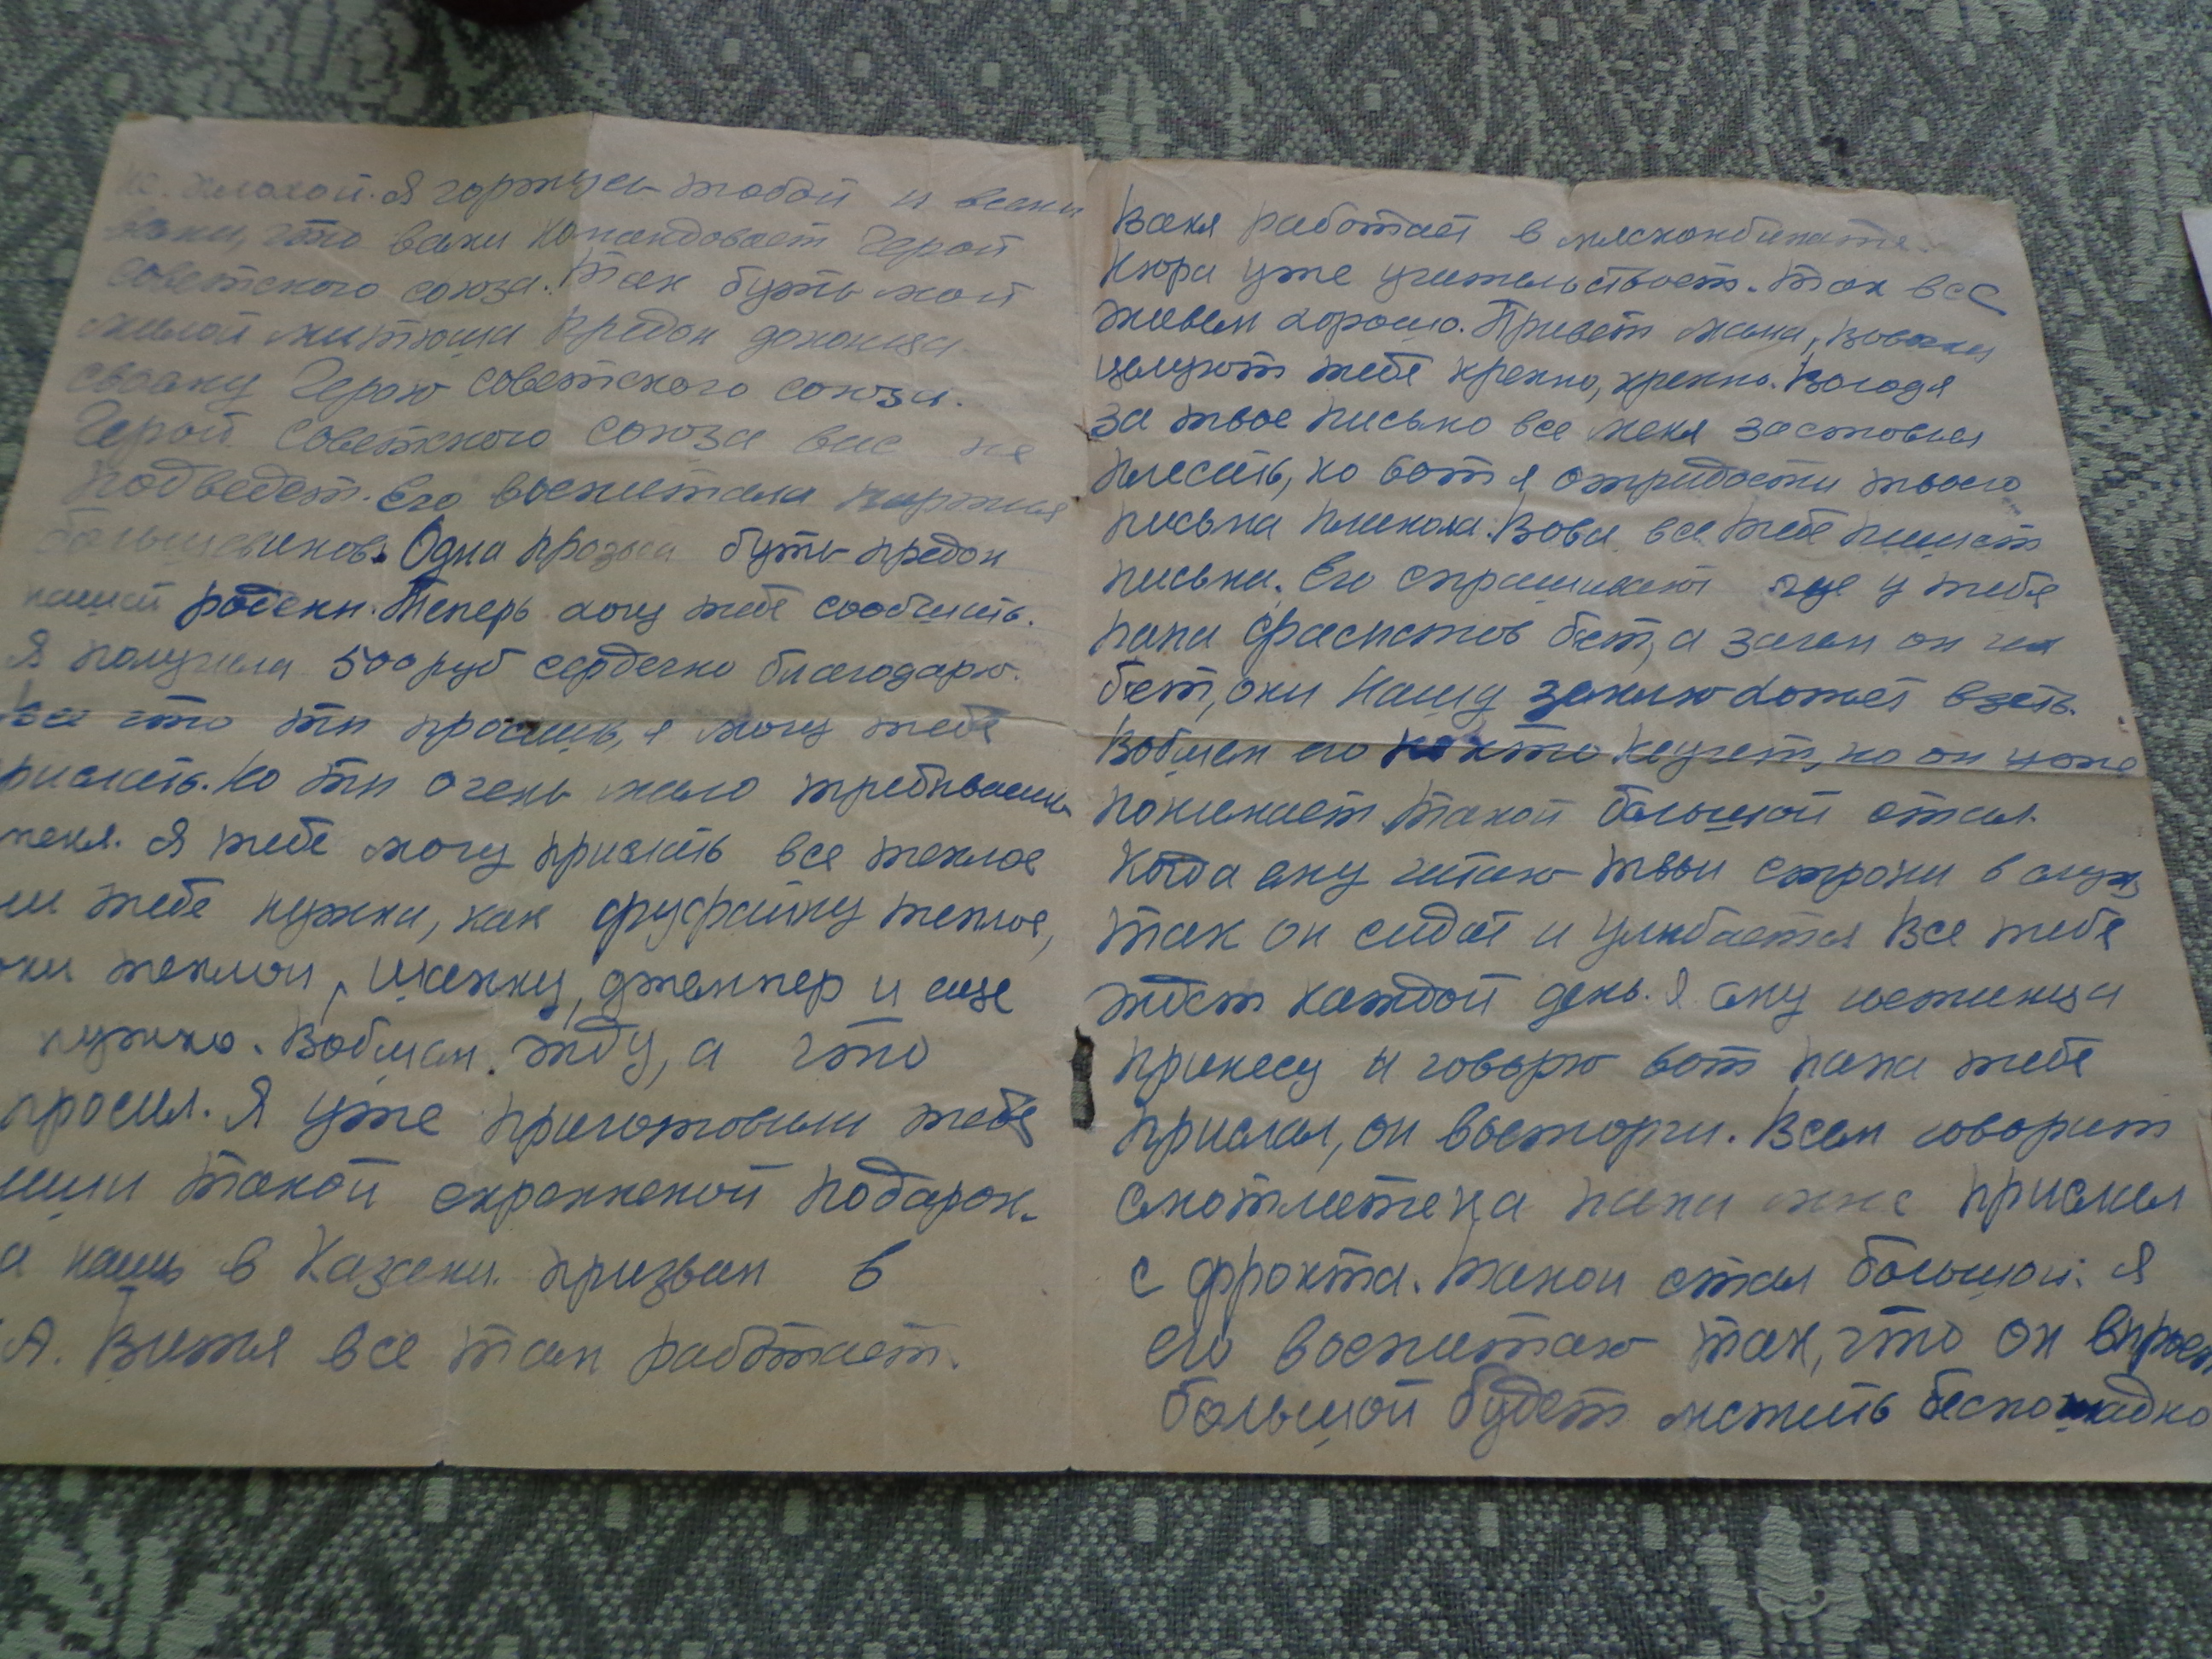 не. плохой. Я горжусь тобой и всеми
вами, что вами командовает Герой
советского союза. Так будь мой
милой предан доконца
своему Герою советского союза.
Герой советского союза вас не
подведет. Его воспитала партия
большевиков. Одна прозьба будь предан
нашей родени. Теперь хочу тебе сообщить.
Я получила 500 руб сердечно благодарю.
Все что ти просишь, я могу тебе
прислать. Но ти очень мало
меня. Я тебе могу прислать все теплое
тебе нужни, как фуфайку теплое,
теплои, шапку, джемпер и еще
нужно. Вобщем. Жду, а что
просил. Я уже приготовили тебе
такой скромненой подарок.
а нашь в Казани. призван в
А. Витя все там работает.
Ваня работает в мясокомбинате.
Нюра уже учительствоет. Так все
живем хорошо. Привет мама, Вовочка
целуют тебе крепко, крепко. Володя
за твое письмо все меня заставлял
плесать, но вот я отрадости твоего
письма пликала. Вова все тебе пишет
письма. Его спрашивают где у тебя
папа фасистов бет, а зачем он их
бет, они нашу землю хотет взеть.
Вобщем его некто неучет, но он уже
понимает. Такой большой стал.
Когда ему читаю твои строки в слух
так он сидит и улибается Все тебе
ждет каждой день. Я ему гостинца
принесу и говорю вот папа тебе
прислал, он восторги. Всем говорит
смотлитека папа мне прислал
с фронта. Такой стал большой. Я
его воспитаю так, что он
большой будет мстить беспощадно